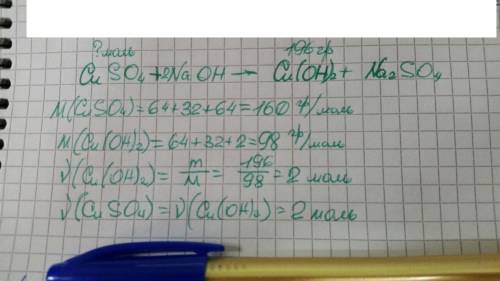 ? моль 196 гр
CuSO4 + 2NaOH → Cu(OH)2 + Na2SO4
M(CuSO4) = 64+32+64 = 160 гр/моль
M(Cu(OH)2) = 64+32+2 = 98 гр/моль
ν(Cu(OH)2) = m/M = 196/98 = 2 моль
ν(CuSO4) = ν(Cu(OH)2) = 2 моль